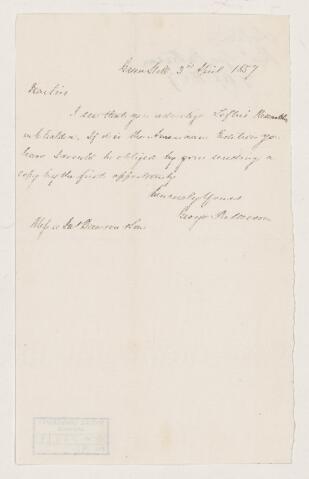 Green Hill 3rd April 1857
Dear Sirs
I see that you advertise Loftus's Researches
in Chaldea. If it is the American Edition you
have I would be obliged by your sending a
copy by the first opportunity
Sincerely Yours
George Patterson
Messrs Dawson & Son